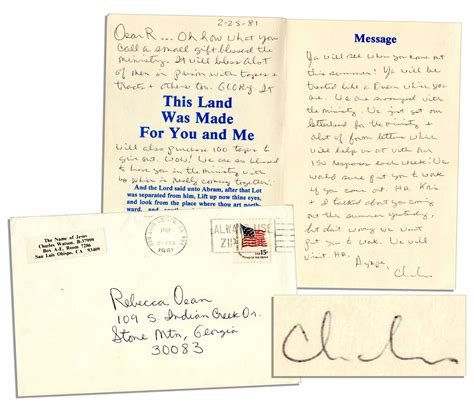 2-25-81
Dear R ... Oh how what you
call a small gift blessed the
ministry. It will bless a lot
of men in prison with tapes +
tracts + others too. GLORY. It
This Land
Was Made
For You and Me
will also purchase 100 tapes to
give out. WOW! We are so blessed
to have you in the ministry with
us which is really coming together.
And the Lord said unto Abram, after that Lot
was separated from him, Lift up now thine eyes,
and look from the place where thou art north-
ward, and
Message
Ya will see when you come out
this summer! Ya will be
treated like a Queen which you
are. We are swamped with the
ministry. We just got our
letterhead for the ministry +
a lot of form letters which
will help us out with our
150 responses each week! We
would sure put you to work
if you come out. HA. Kris
+ I talked about you coming
out this summer yesterday,
but don't worry we won't
put you to work. We will
visit HA.
Agape,
The Name of Jesus
Charles Watson, B-37999
Box A-E, Room 7286
San Luis Obispo, CA 93409
PM
1981
ALWAYS USE
ZIP
USA 15c
Rebecca Dean
109 S. Indian Creek Dr.
Stone Mtn, Georgia
30083